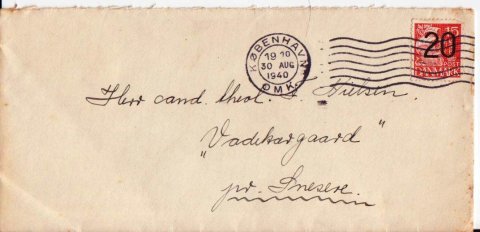 KØBENHAVN
19
30 AUG
1940
OMK.
20
15
POST
DANMARK
Herr cand. theol. Nielsen.
"Vadekærgaard"
pr. Snesere.